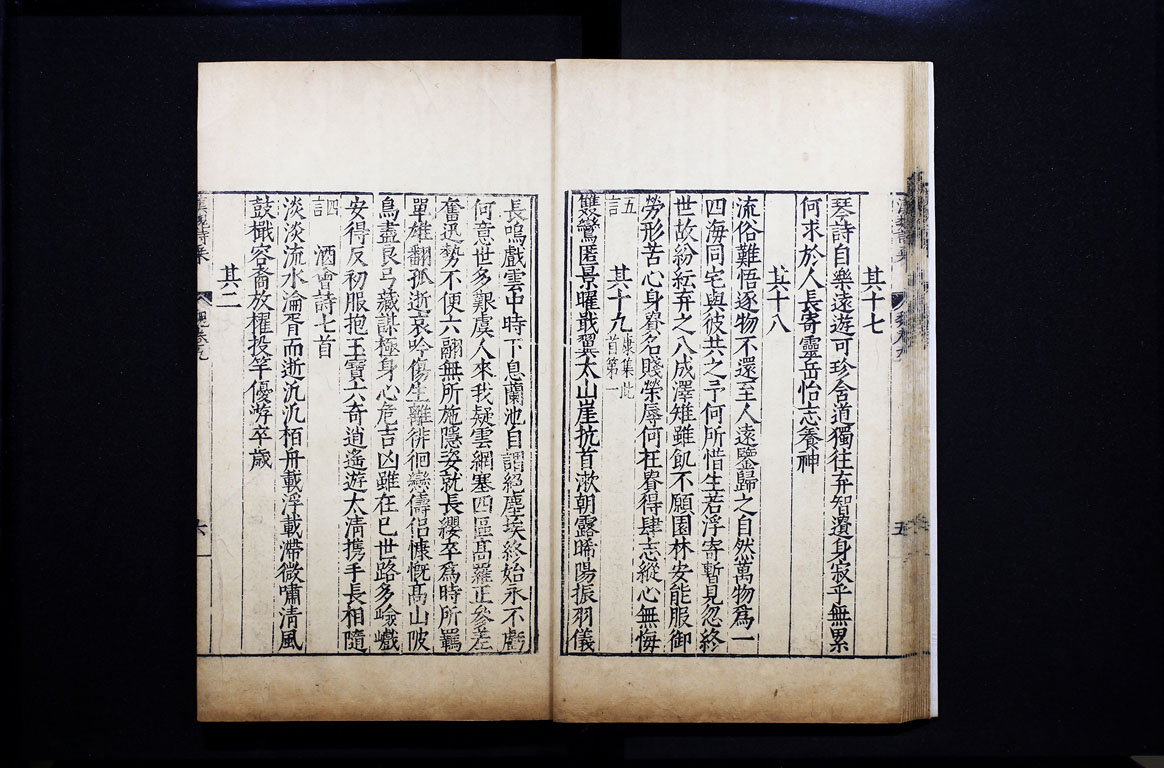 其十七
琴詩自樂遠遊可珍舍道獨往弃智遺身寂乎無累
何求於人長寄靈岳怡志養神
其十八
流俗難悟逐物不還至人遠鑒歸之自然萬物爲一
四海同宅與彼共之予何所惜生若浮寄暫見忽終
世故紛紜弃之八成澤雉雖飢不願園林安能服御
勞形苦心身貴名賤榮辱何在貴得肆志縱心無悔
五言
其十九康集此首第一
雙鸞匿景曜戢翼太山崖抗首漱朝露晞陽振羽儀
長鳴戲雲中時下息蘭池自謂絕塵埃終始永不虧
何意世多艱虞人來我疑雲網塞四區高羅正參差
奮迅勢不便六翮無所施隱姿就長纓卒爲時所羈
單雄翻孤逝哀吟傷生離徘徊戀儔侶慷慨高山陂
鳥盡良弓藏謀極身心危吉凶雖在己世路多嶮巇
安得反初服抱玉寶六奇逍遙遊太清攜手長相隨
四言
酒會詩七首
淡淡流水淪胥而逝汎汎栢舟載浮載滯微嘯清風
鼓檝容裔放櫂投竿優游卒歲
其二